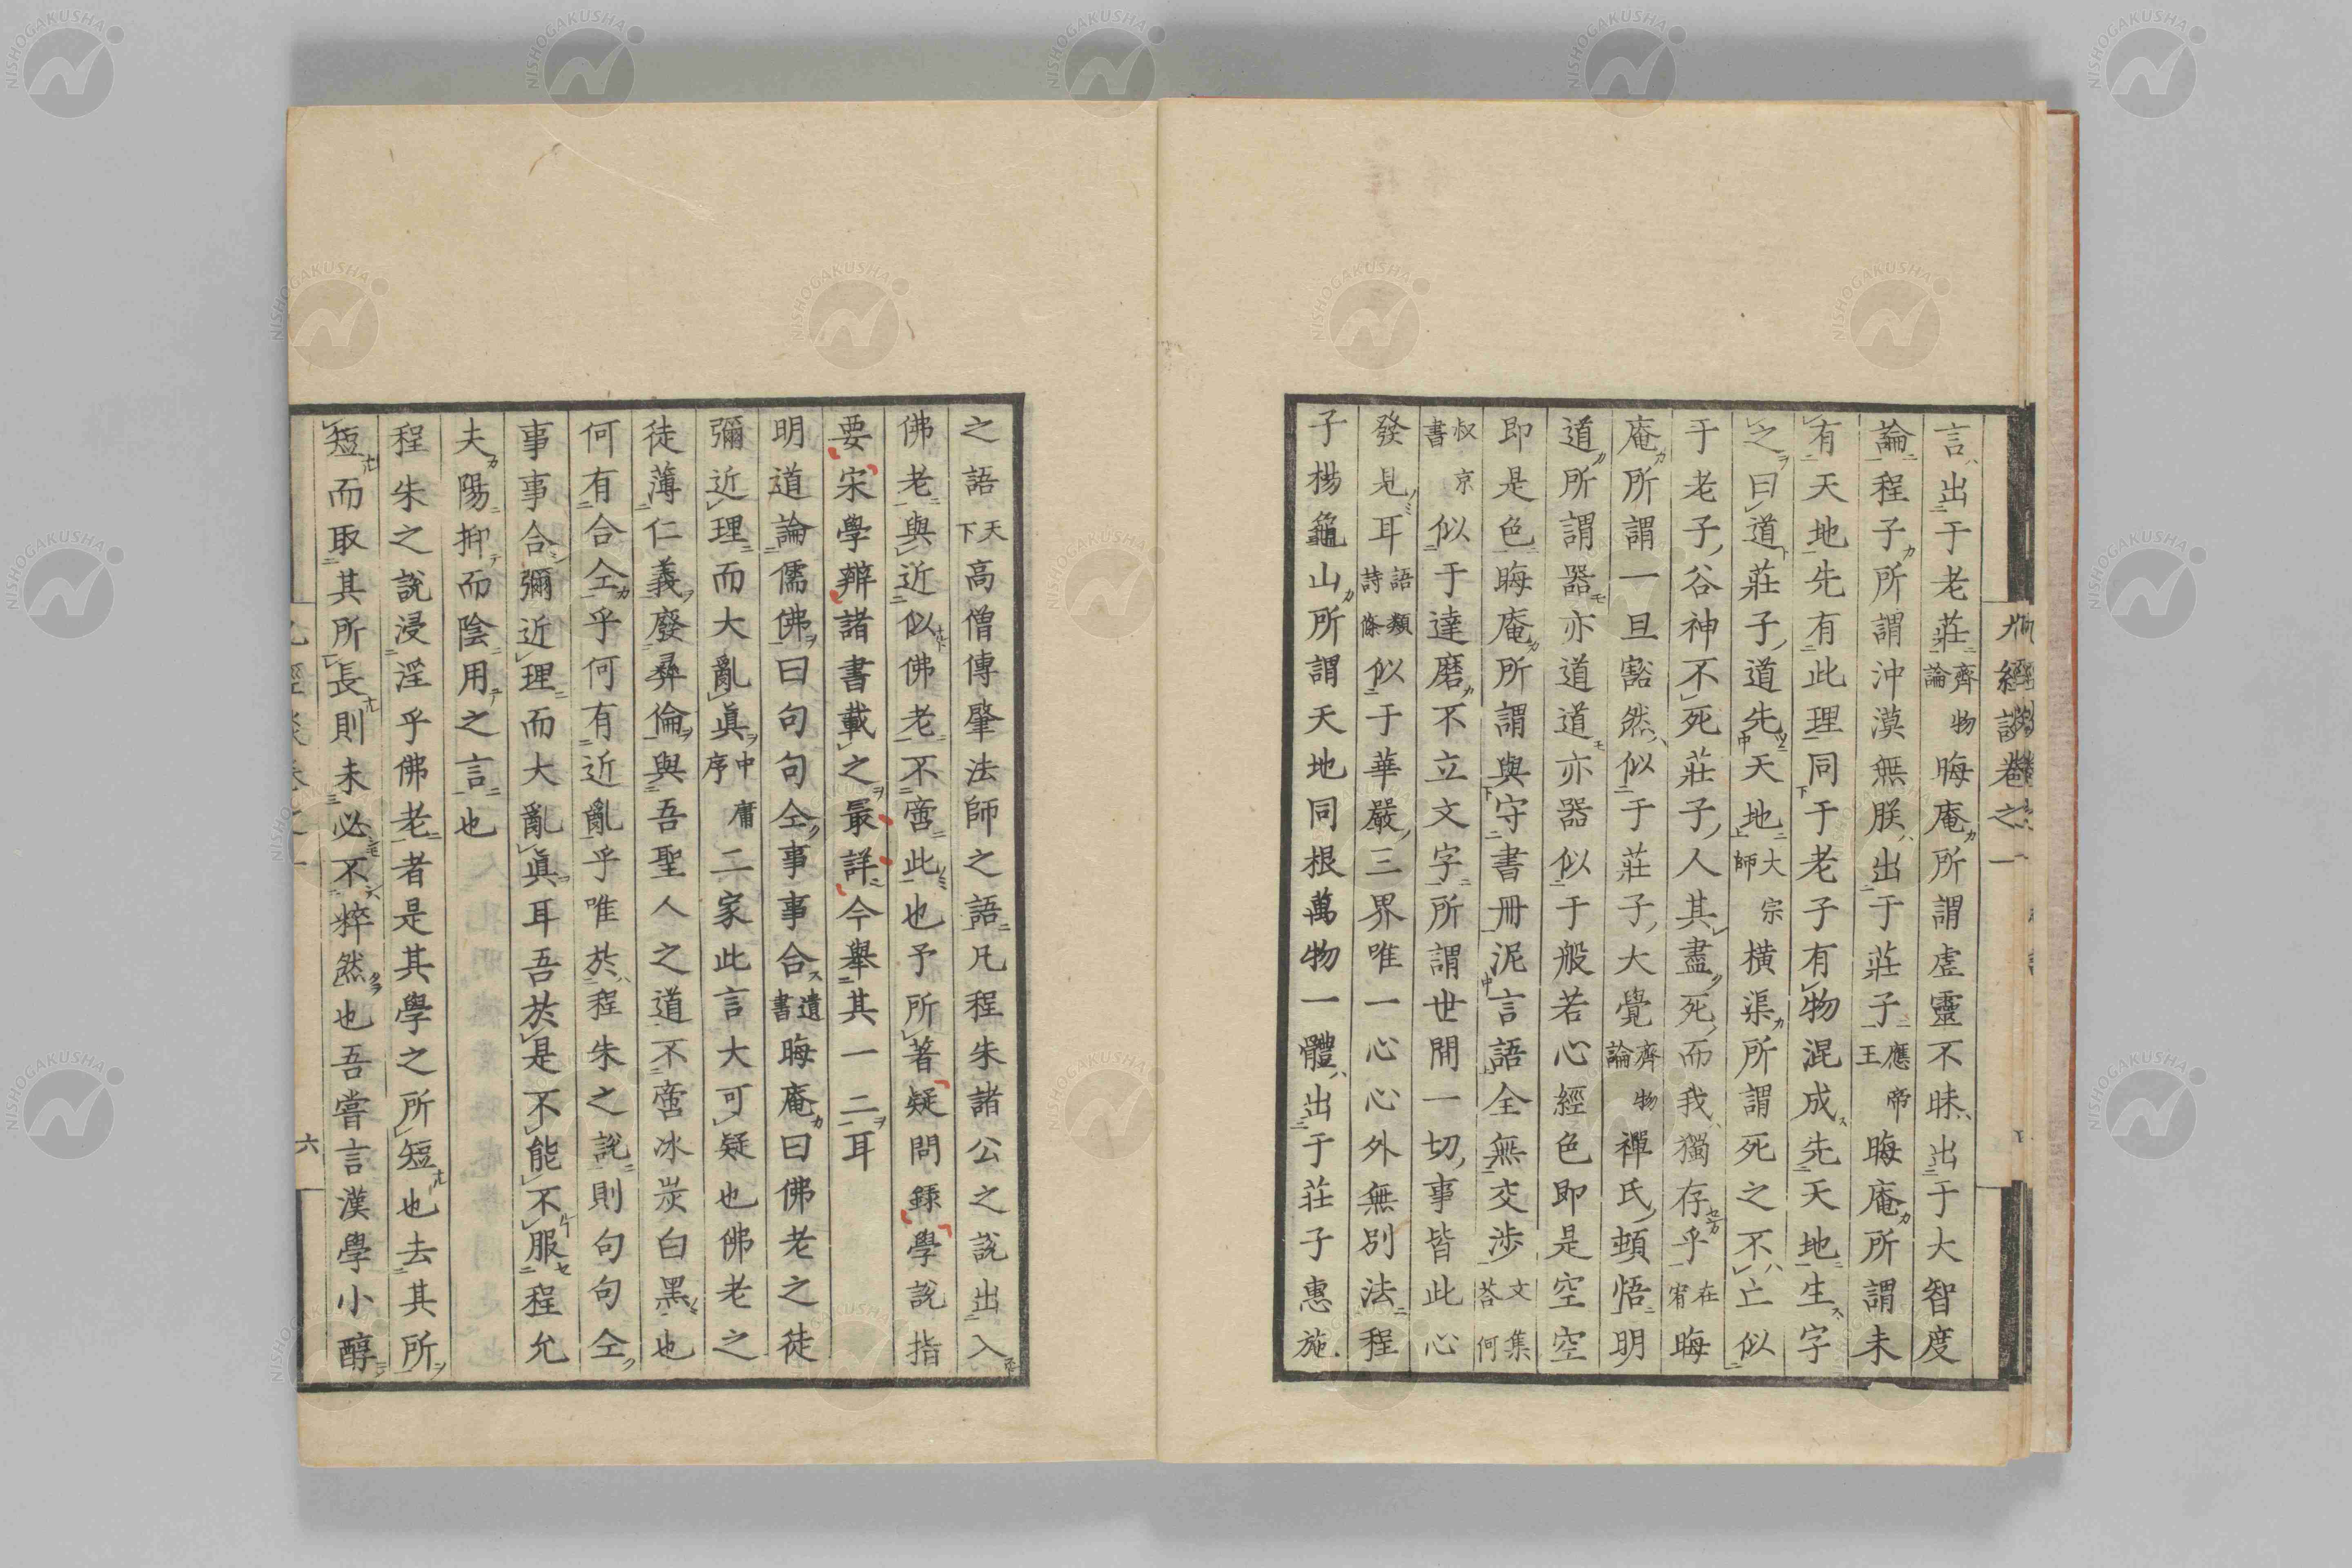 九經談卷之一
言出于老莊齊物論晦庵所謂虛靈不昧出于大智度
論程子所謂沖漠無朕出于莊子應帝王晦庵所謂未
有天地先有此理同于老子有物混成先天地生字
之曰道莊子道先天地大宗師橫渠所謂死之不亡似
于老子谷神不死莊子人其盡死而我獨存乎在宥晦
庵所謂一旦豁然似于莊子大覺齊物論禪氏頓悟明
道所謂器亦道道亦器似于般若心經色即是空空
即是色晦庵所謂與守書册泥言語全無交涉文集荅何
叔京書似于達磨不立文字所謂世間一切事皆此心
發見耳語類詩條似于華嚴三界唯一心心外無別法程
子楊龜山所謂天地同根萬物一體出于莊子惠施
之語天下高僧傳肇法師之語凡程朱諸公之說出入
佛老與近似佛老不啻此也予所著疑問錄學說指
要宋學辨諸書載之最詳今舉其一二耳
明道論儒佛曰句句仝事事合遺書晦庵曰佛老之徒
彌近理而大亂眞中庸序二家此言大可疑也佛老之
徒薄仁義廢彝倫與吾聖人之道不啻冰炭白黑也
何有合仝乎何有近亂乎唯於程朱之說則句句仝
事事合彌近理而大亂眞耳吾於是不能不服程允
夫陽抑而陰用之言也
程朱之說浸淫乎佛老者是其學之所短也去其所
短而取其所長則未必不粹然也吾嘗言漢學小醇
九經談卷之一
六
NISHOGAKUSHA